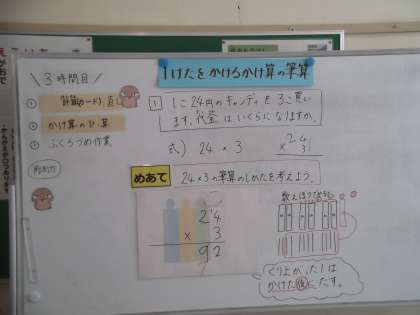 1けたをかけるかけ算の筆算
3時間目
① 計算カード、直し
② かけ算のひっ算
③ ふくろづめ作業
1 1こ24円のキャンディを3こ買い
ます。代金はいくらになりますか。
式) 24 × 3
24
× 3
めあて
24×3の筆算のしかたを考えよう。
24
× 3
92
くり上がった1は
かけた後にたす。